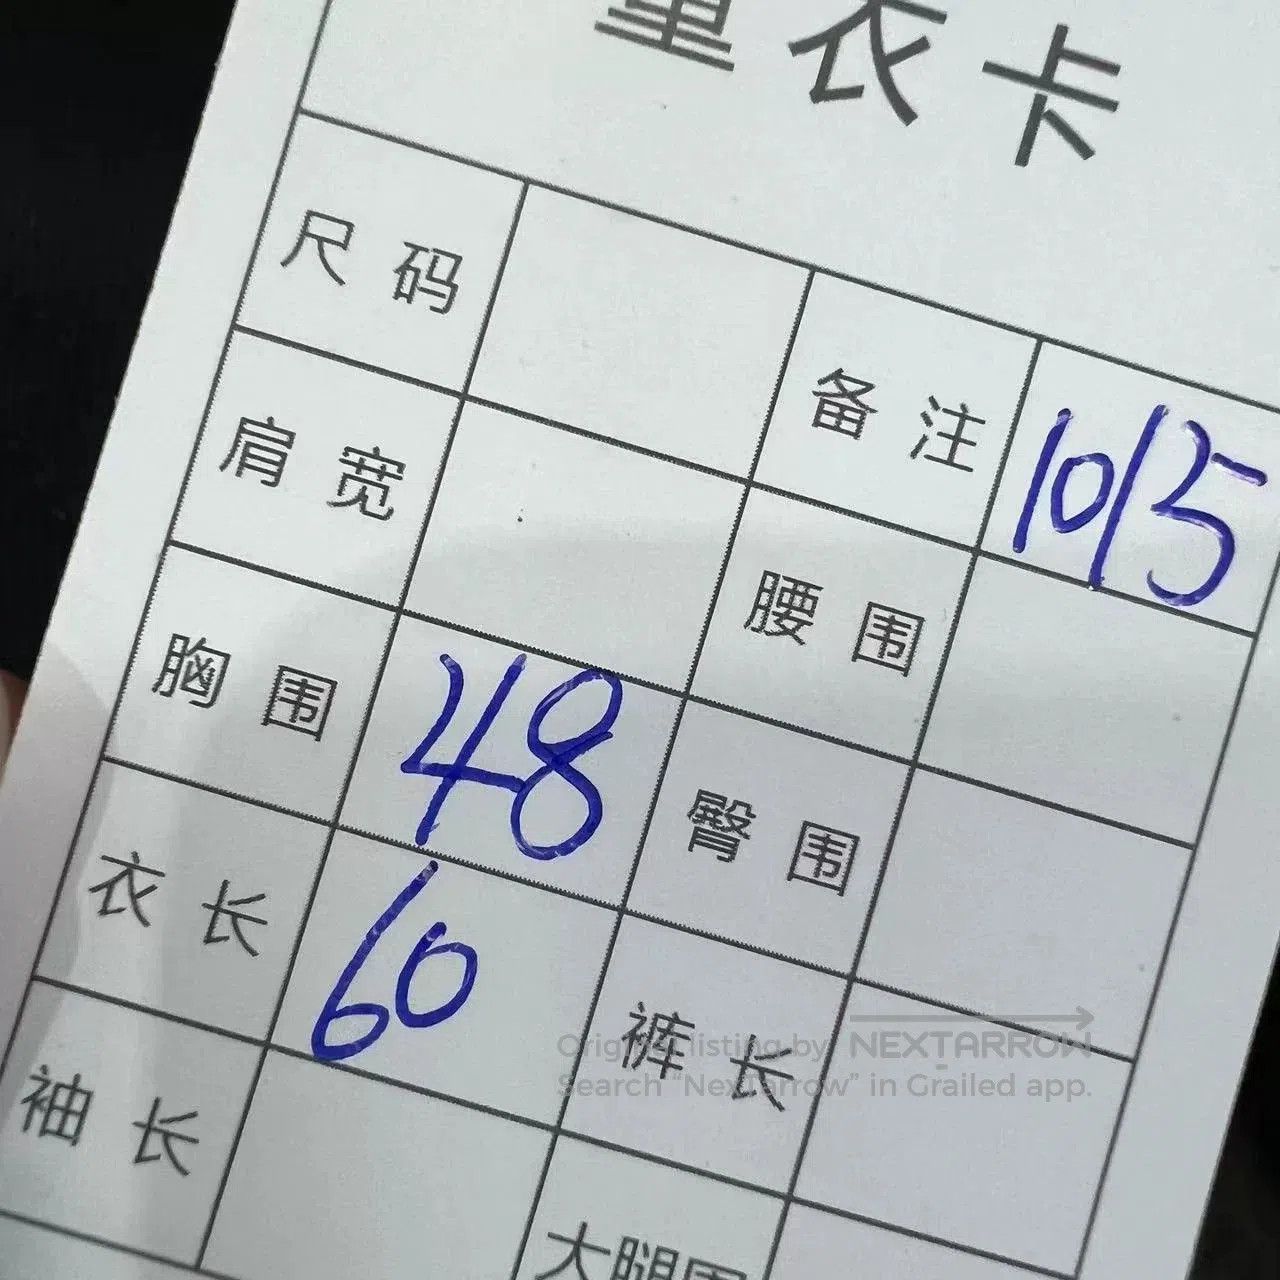 量衣卡
尺码 备注 10/5
肩宽 腰围
胸围 48 臀围
衣长 60 裤长
袖长 大腿围
Original listing by NEXTARROW
Search "NexTarrow" in Grailed app.